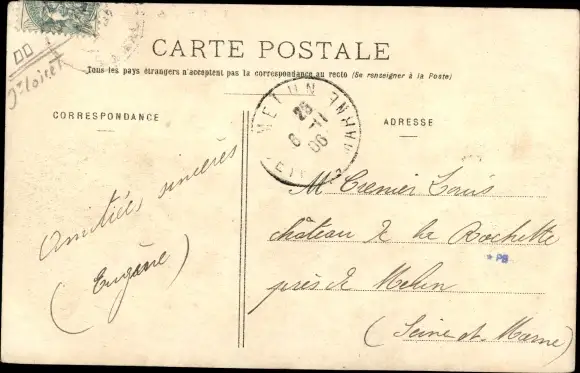 CARTE POSTALE
Tous les pays étrangers n'acceptent pas la correspondance au recto (Se renseigner à la Poste)
CORRESPONDANCE
ADRESSE
MELUN
25
6 -11
06
Loiret
Amitiées sincères
(Eugène)
Mr Crenier Louis
château de la Rochette
* PB
près de Melun
(Seine et Marne)